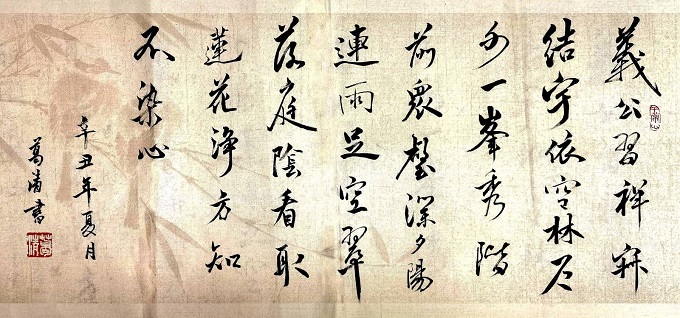 義公習禪寂
結宇依空林戶
外一峯秀階
前衆壑深夕陽
連雨足空翠
落庭陰看取
蓮花淨方知
不染心
辛丑年夏月
葛清書